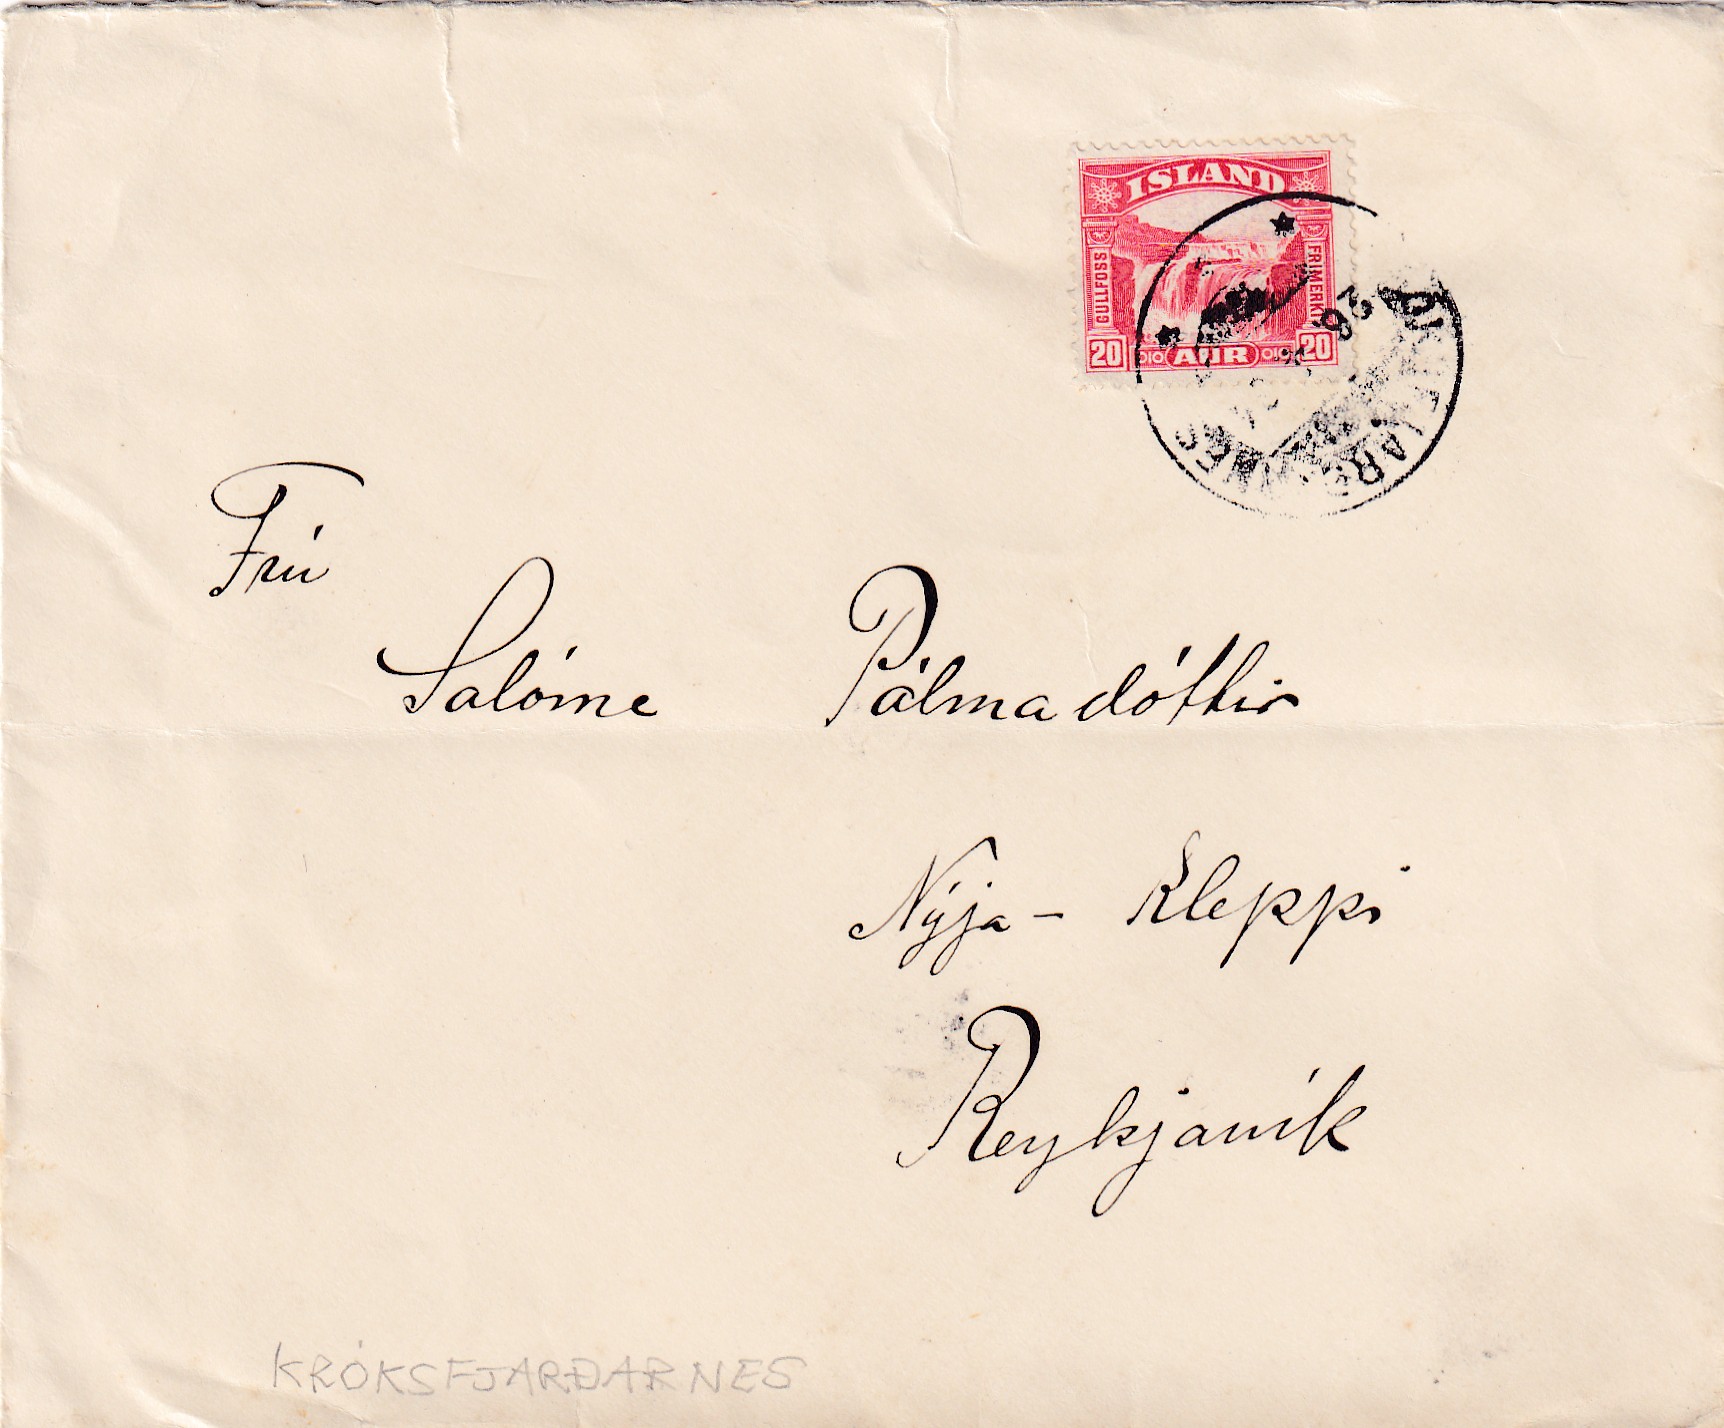 ISLAND
GULLFOSS
FRIMERKI
20 AUR 20
Frú
Salóme Pálmadóttir
Nýja - Kleppi
Reykjavík
KRÓKSFJARÐARNES